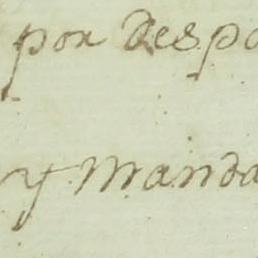 por Despo
y Manda